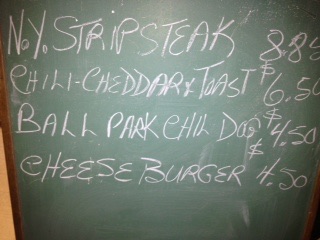 N.Y. STRIP STEAK 8.85
CHILI-CHEDDAR & TOAST $6.50
BALL PARK CHIL DOG $4.50
CHEESE BURGER $4.50